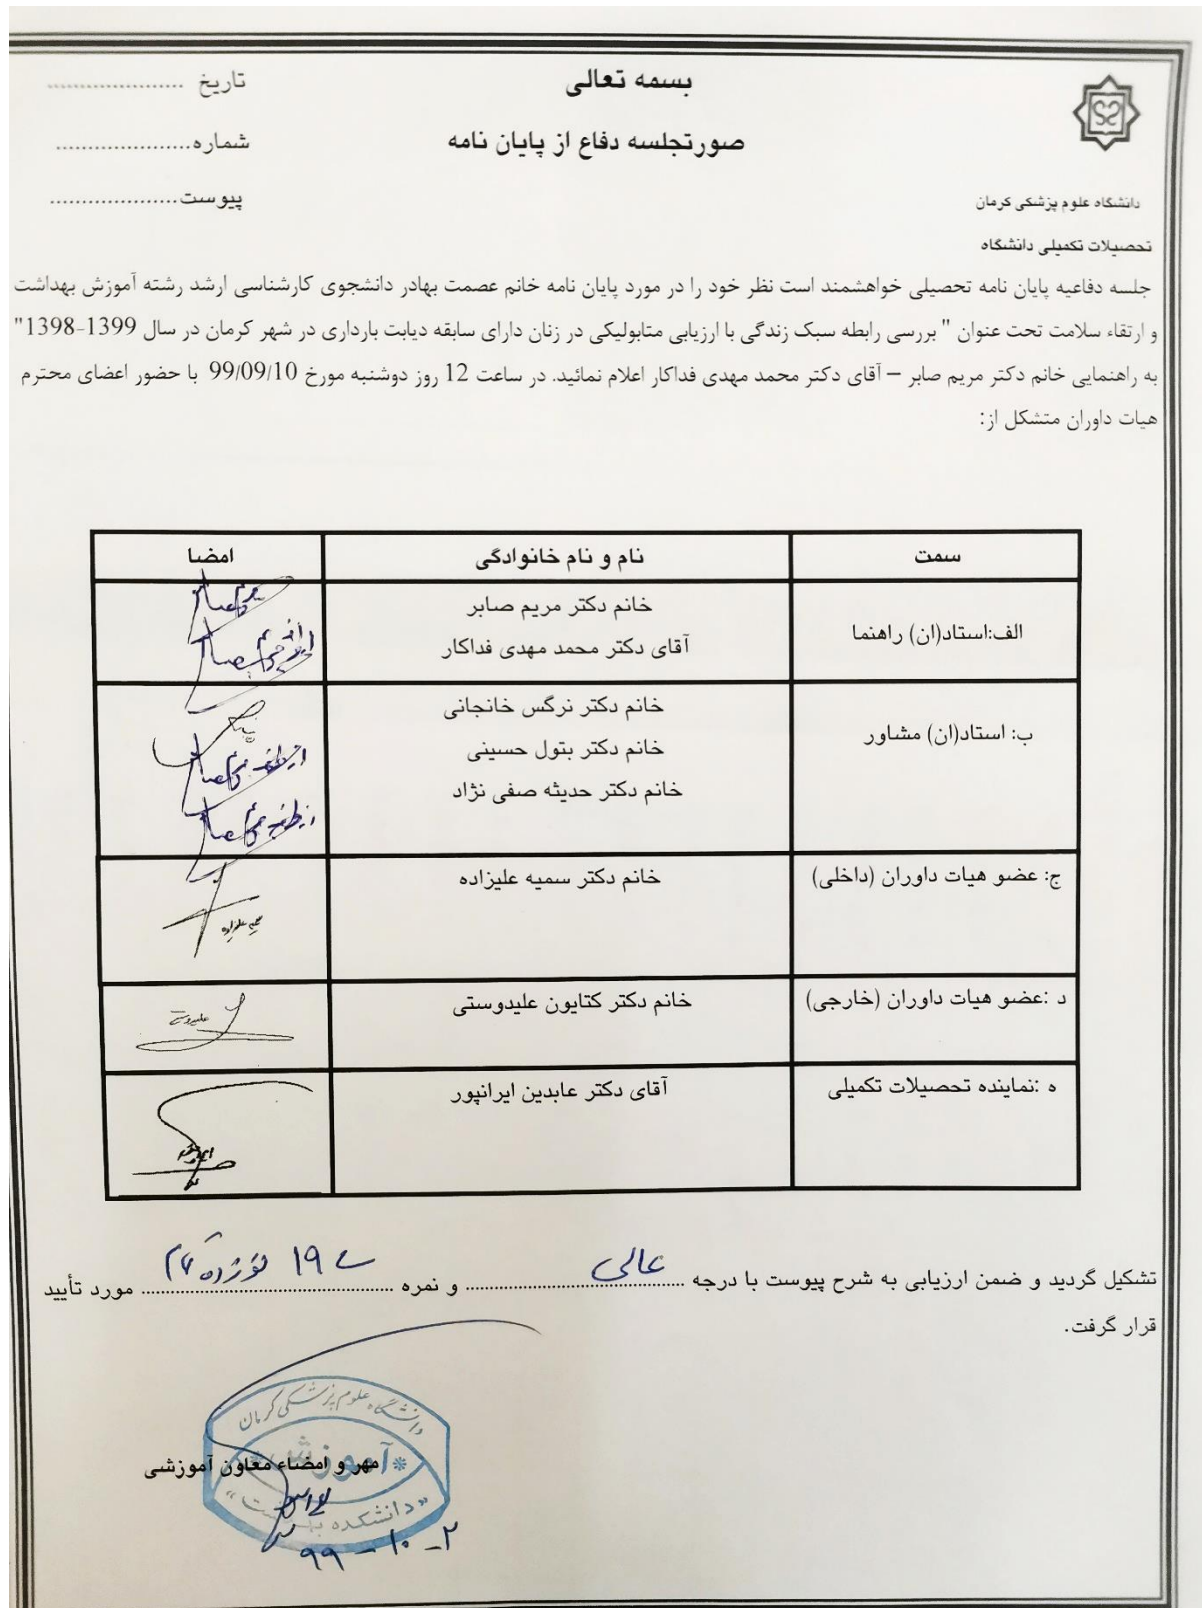 بسمه تعالی
صورتجلسه دفاع از پایان نامه
تاریخ .....................
شماره.....................
پیوست....................
دانشگاه علوم پزشکی کرمان
تحصیلات تکمیلی دانشگاه
جلسه دفاعیه پایان نامه تحصیلی خواهشمند است نظر خود را در مورد پایان نامه خانم عصمت بهادر دانشجوی کارشناسی ارشد رشته آموزش بهداشت
و ارتقاء سلامت تحت عنوان " بررسی رابطه سبک زندگی با ارزیابی متابولیکی در زنان دارای سابقه دیابت بارداری در شهر کرمان در سال 1399-1398"
به راهنمایی خانم دکتر مریم صابر – آقای دکتر محمد مهدی فداکار اعلام نمائید. در ساعت 12 روز دوشنبه مورخ 99/09/10 با حضور اعضای محترم
هیات داوران متشکل از:
سمت نام و نام خانوادگی امضا
الف:استاد(ان) راهنما
خانم دکتر مریم صابر
آقای دکتر محمد مهدی فداکار
ب: استاد(ان) مشاور
خانم دکتر نرگس خانجانی
خانم دکتر بتول حسینی
خانم دکتر حدیثه صفی نژاد
ج: عضو هیات داوران (داخلی) خانم دکتر سمیه علیزاده
سمیه علیزاده
د :عضو هیات داوران (خارجی) خانم دکتر کتایون علیدوستی
علیدوستی
ه :نماینده تحصیلات تکمیلی آقای دکتر عابدین ایرانپور
تشکیل گردید و ضمن ارزیابی به شرح پیوست با درجه عالی و نمره ۱۹ نوزده تمام مورد تأیید
قرار گرفت.
دانشگاه علوم پزشکی کرمان
آموزش
مهر و امضاء معاون آموزشی
«دانشکده بهداشت»
۹۹-۱۰-۲